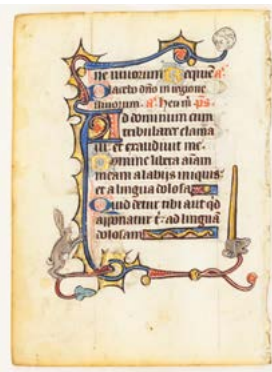 ne uiuorum
Placebo dño in regione
uiuorum. a. Heu m ps.
Ad dominum cum
tribularer clama
ui et exaudiuit me.
Domine libera aĩam
meam a labijs iniquis
et a lingua dolosa
Quid detur tibi aut qđ
apponatur t ad linguã
dolosam